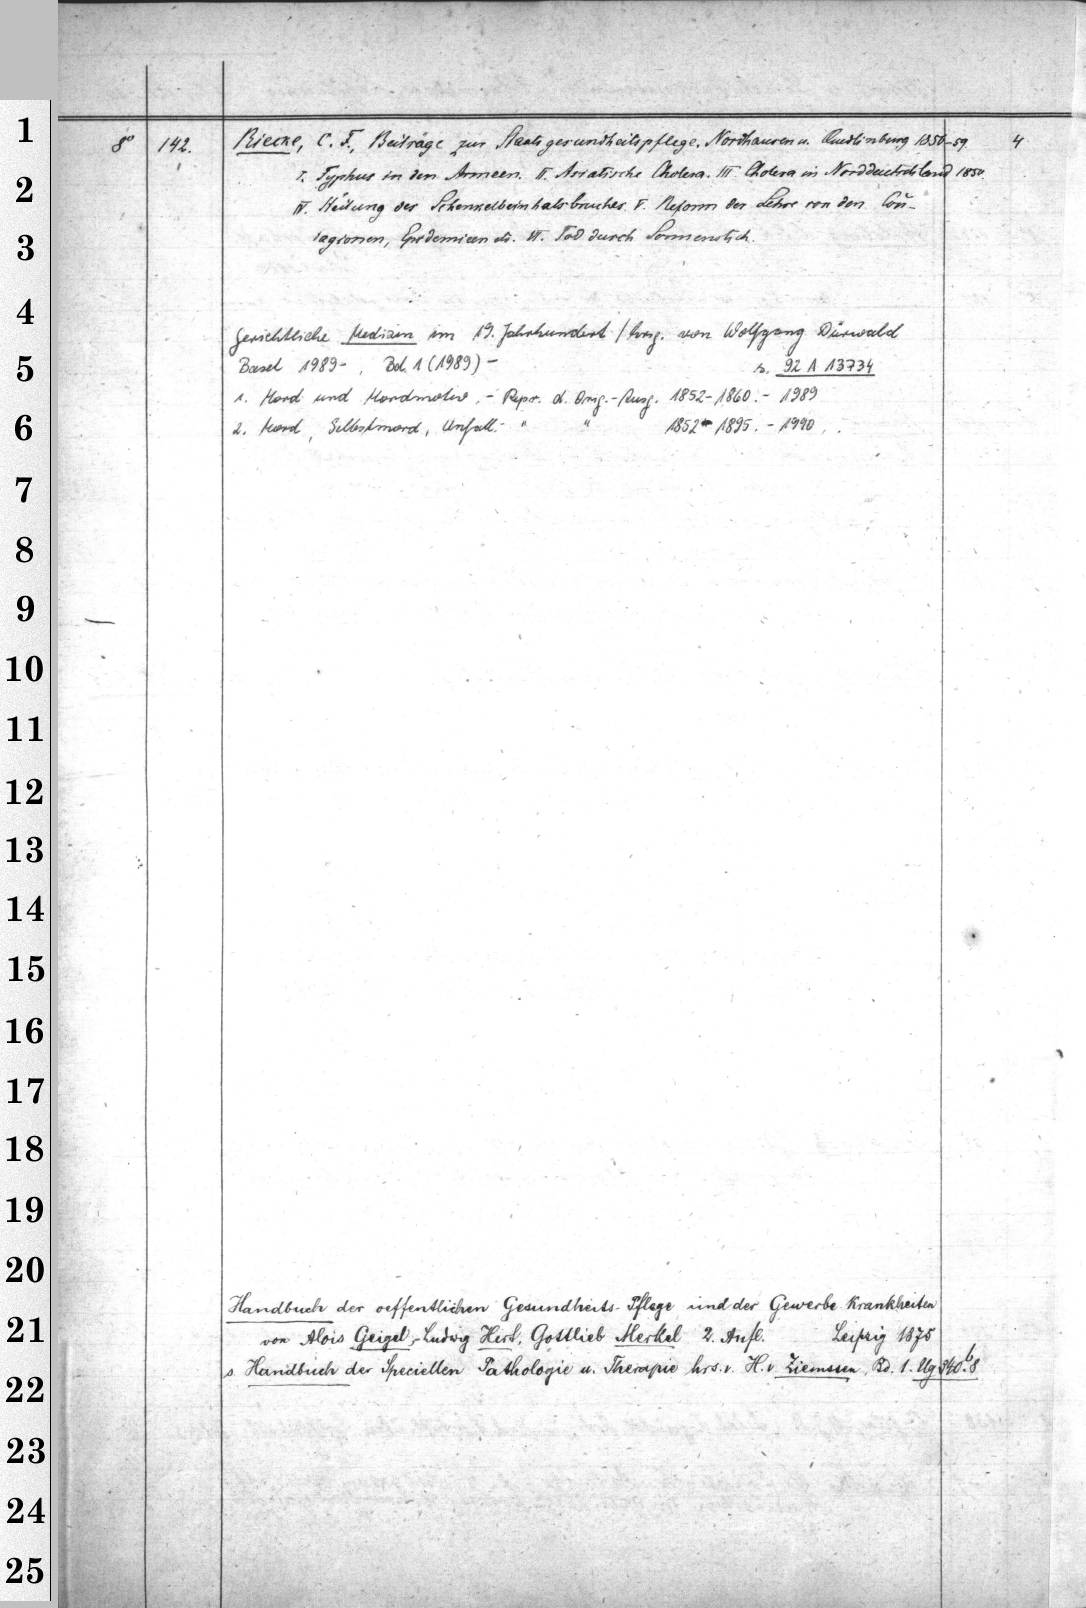 8° 142. Riecke, C. F., Beiträge zur Staatsgesundheitspflege. Nordhausen u. Quedlinburg 1850-59. 4
I. Typhus in den Armeen. II. Asiatische Cholera. III Cholera in Norddeutschland 1850.
IV. Heilung des Schenkelbeinhalsbruches. V. Reform der Lehre von den Con-
tagionen, Epidemieen etc. VI. Tod durch Sonnenstich.
Gerichtliche Medizin im 19. Jahrhundert / hrsg. von Wolfgang Dürwald
Basel 1989- , Bd. 1 (1989) - s. 92 A 13734
1. Mord und Mordmotive. - Repr. d. Orig.-Ausg. 1852-1860. - 1989
2. Mord, Selbstmord, Unfall. - " " 1852-1895. - 1990
Handbuch der oeffentlichen Gesundheits-Pflege und der Gewerbe Krankheiten
von Alois Geigel, Ludwig Hirt, Gottlieb Merkel 2. Aufl. Leipzig 1875
s. Handbuch der Speciellen Pathologie u. Therapie hrs. v. H. v Ziemssen, Bd. 1.
1
2
3
4
5
6
7
8
9
10
11
12
13
14
15
16
17
18
19
20
21
22
23
24
25